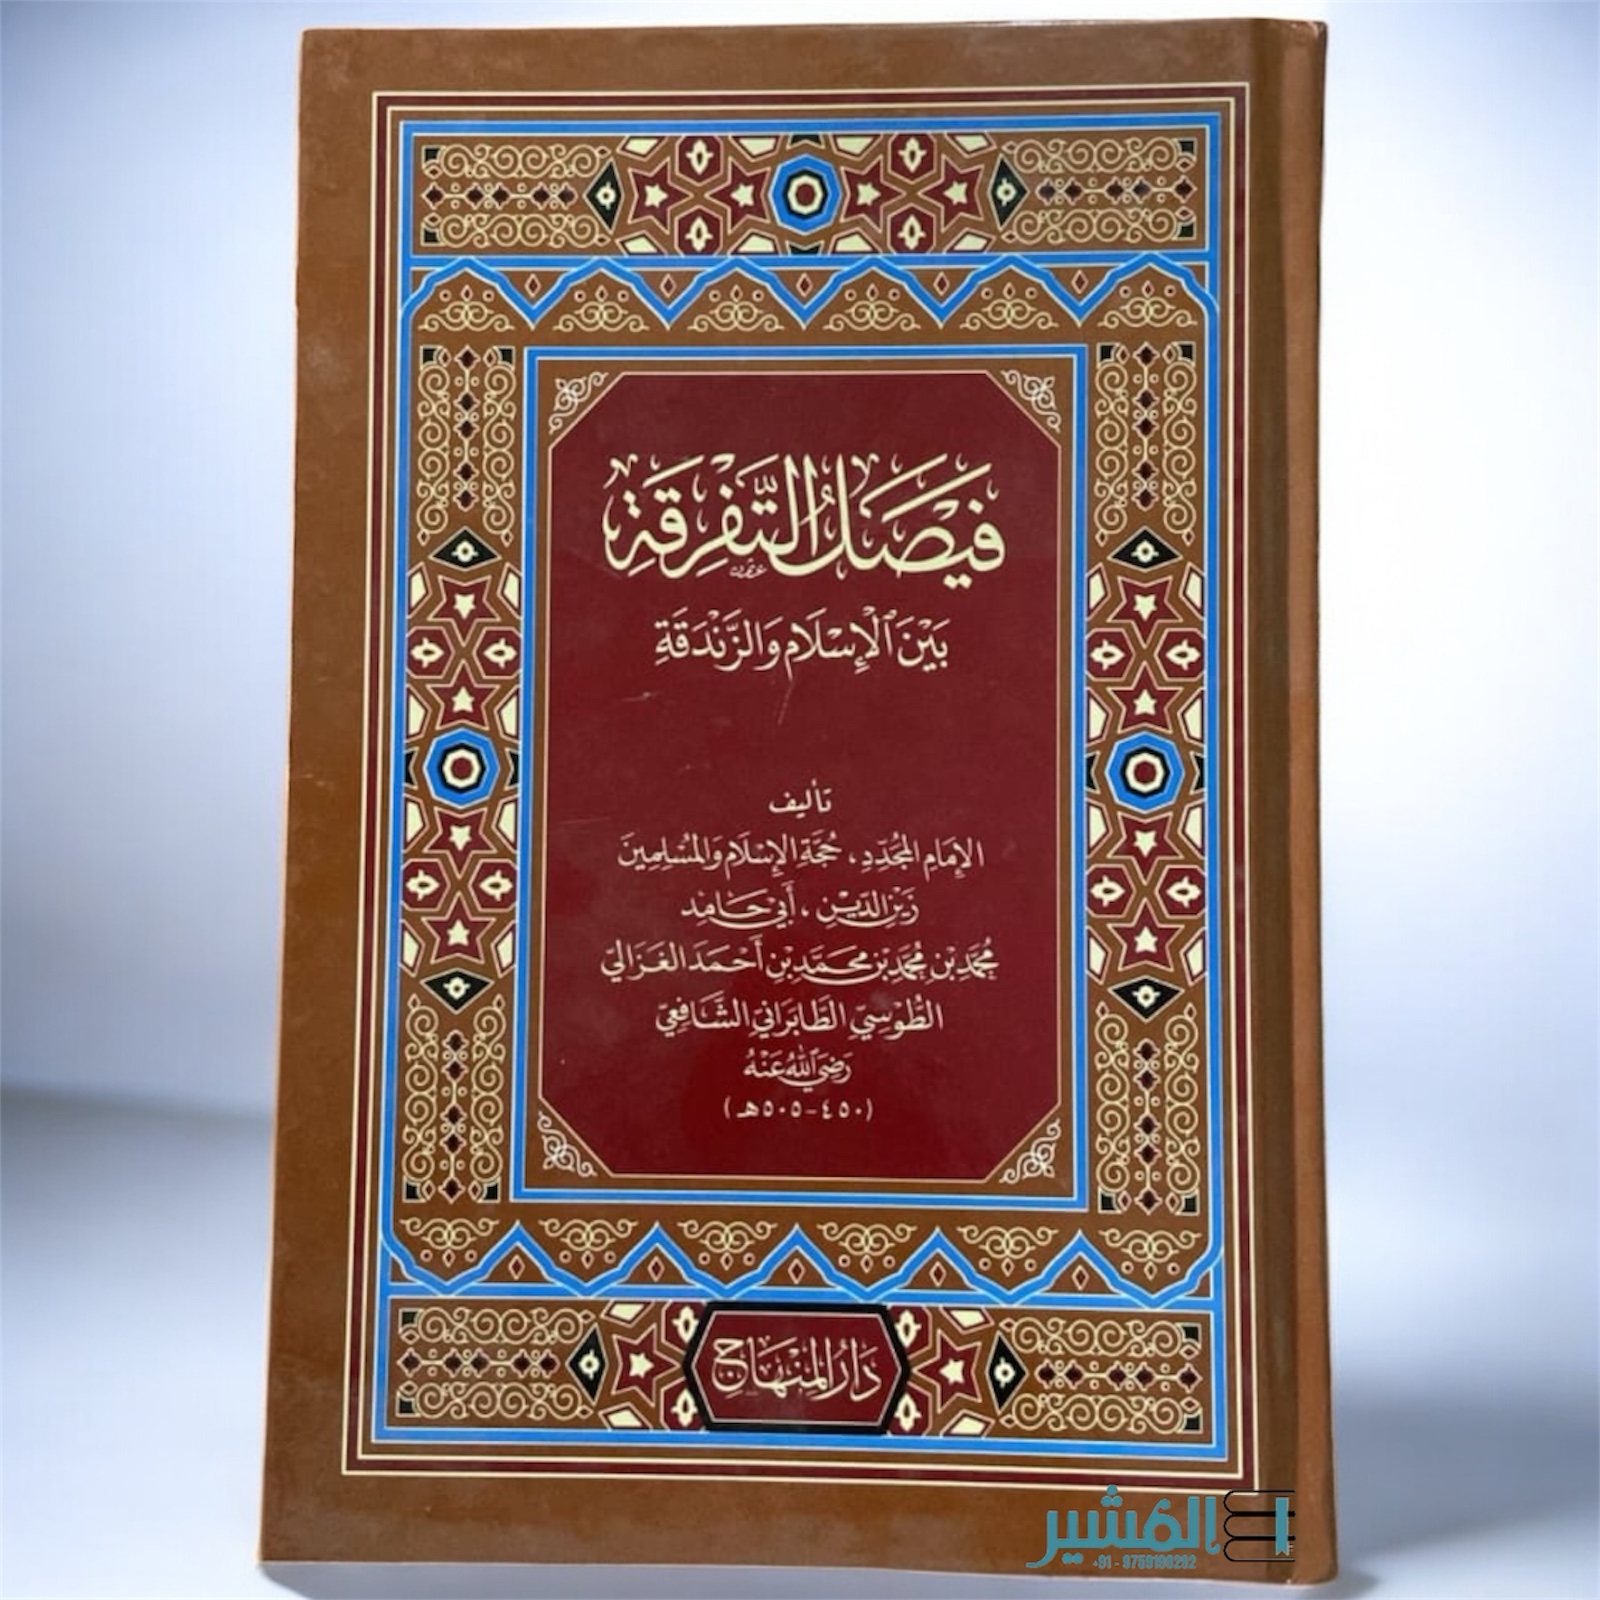 فَيْصَلُ التَّفْرِقَةِ
بَيْنَ الْإِسْلَامِ وَالزَّنْدَقَةِ
تأليف
الإِمَامِ المُجَدِّدِ، حُجَّةِ الإِسْلَامِ وَالمُسْلِمِينَ
زَيْنِ الدِّيْنِ، أَبِي حَامِدٍ
مُحَمَّدِ بْنِ مُحَمَّدِ بْنِ مُحَمَّدِ بْنِ أَحْمَدَ الغَزَالِيِّ
الطُّوْسِيِّ الطَّابَرَانِيِّ الشَّافِعِيِّ
رَضِيَ اللهُ عَنْهُ
(٤٥٠-٥٠٥هـ)
دَارُ المِنْهَاجِ
المشير
+91 - 9759190292